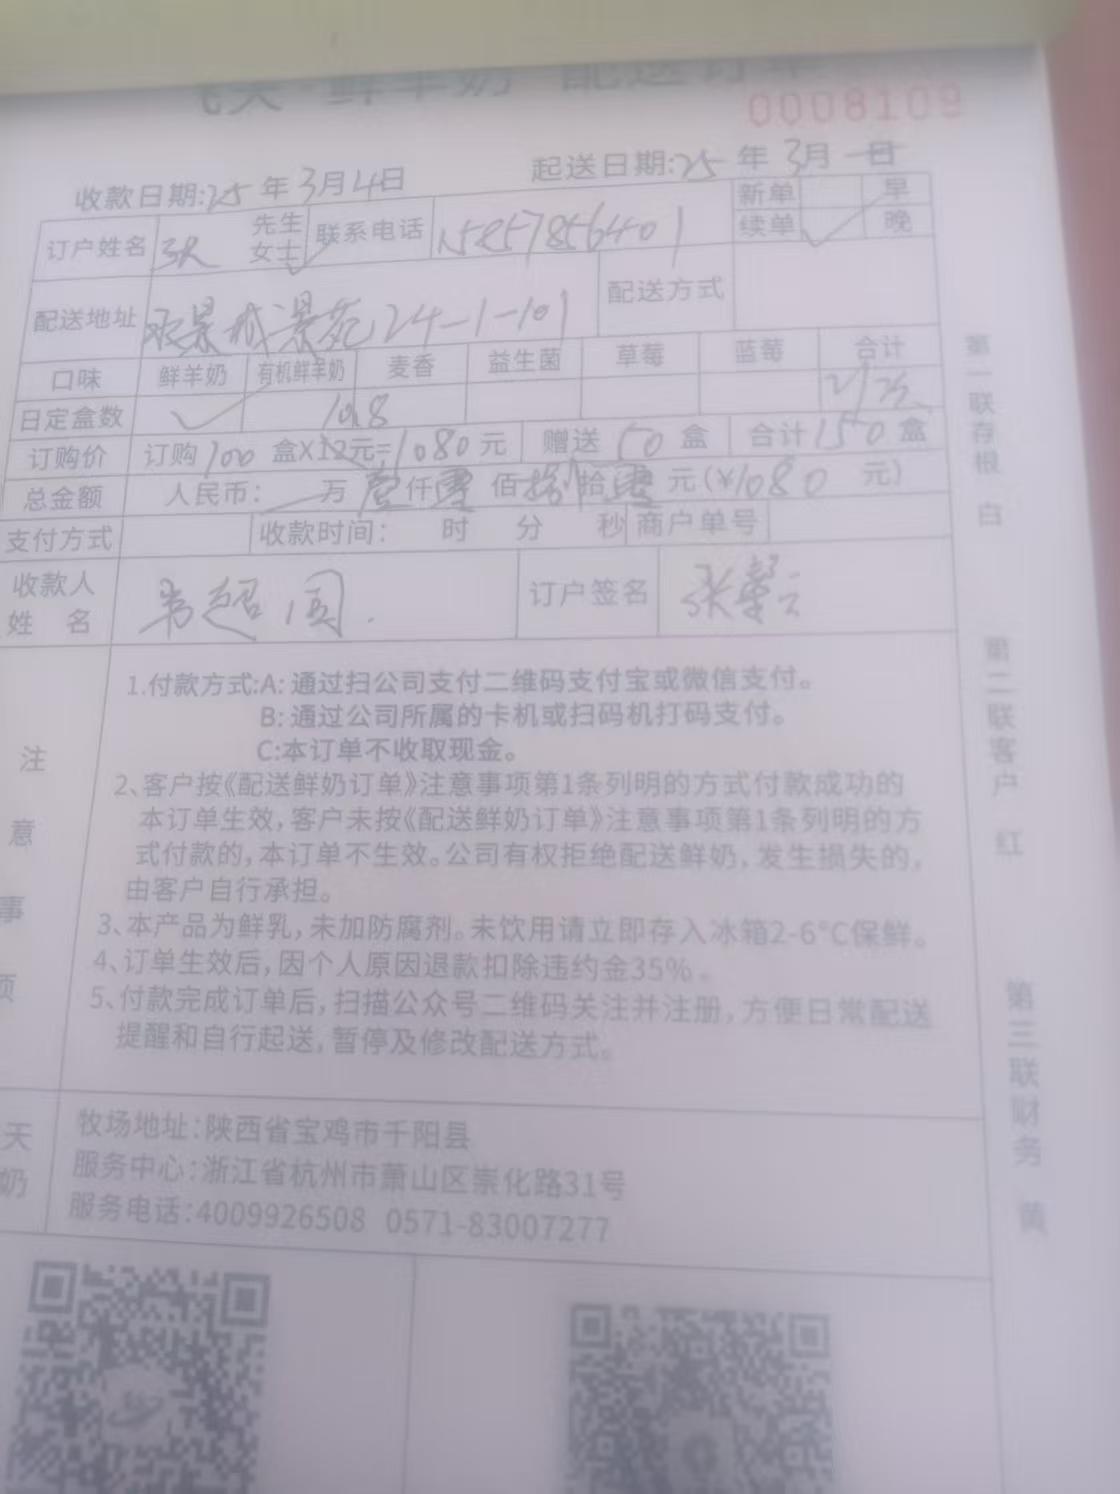 飞天·鲜羊奶 配送订单
0008109
收款日期:25年3月4日 起送日期:25年3月一日
订户姓名 张 先生 女士 联系电话 15857856401 新单 续单 早 晚
配送地址 景苑24-1-101 配送方式
口味 鲜羊奶 有机鲜羊奶 麦香 益生菌 草莓 蓝莓 合计
日定盒数 10.8
订购价 订购100盒X12元=1080元 赠送50盒 合计150盒
总金额 人民币: 万壹仟零佰捌拾零元(¥1080元)
支付方式 收款时间: 时 分 秒 商户单号
收款人姓名 订户签名 张
注意事项
1.付款方式:A:通过扫公司支付二维码支付宝或微信支付。
B:通过公司所属的卡机或扫码机打码支付。
C:本订单不收取现金。
2、客户按《配送鲜奶订单》注意事项第1条列明的方式付款成功的
本订单生效,客户未按《配送鲜奶订单》注意事项第1条列明的方
式付款的,本订单不生效。公司有权拒绝配送鲜奶,发生损失的,
由客户自行承担。
3、本产品为鲜乳,未加防腐剂。未饮用请立即存入冰箱2-6°C保鲜。
4、订单生效后,因个人原因退款扣除违约金35%。
5、付款完成订单后,扫描公众号二维码关注并注册,方便日常配送
提醒和自行起送,暂停及修改配送方式。
天
奶
牧场地址:陕西省宝鸡市千阳县
服务中心:浙江省杭州市萧山区崇化路31号
服务电话:4009926508 0571-83007277
第一联存根 白
第二联客户 红
第三联财务 黄